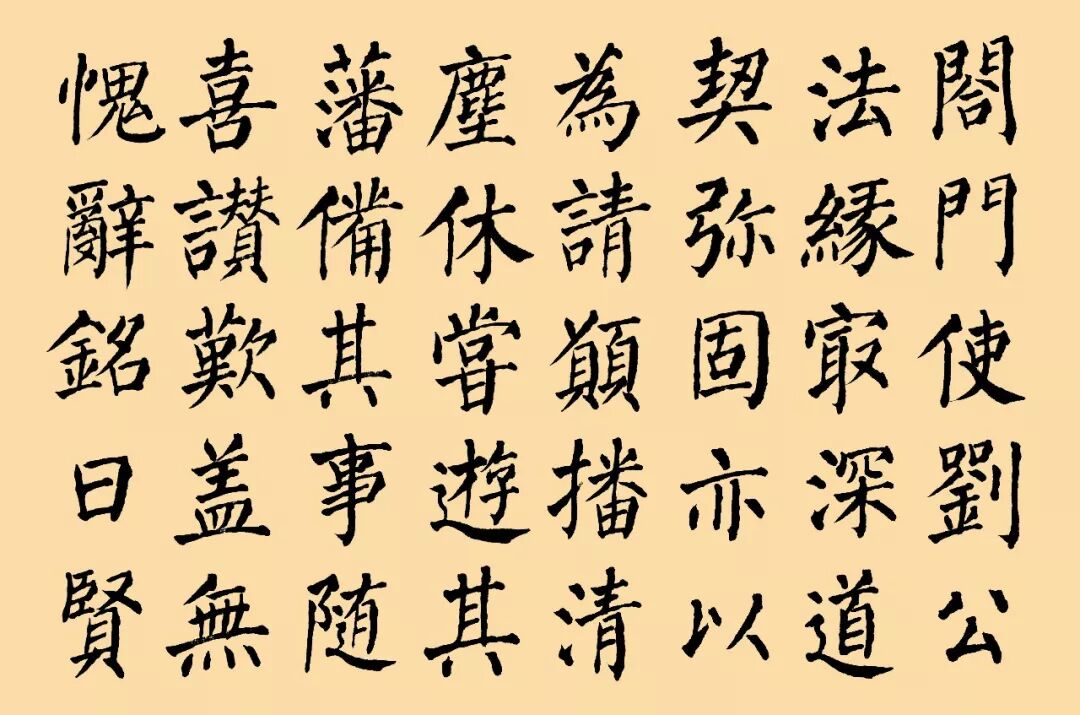 閤門使劉公
法緣㝡深道
契弥固亦以
為請願播清
塵休嘗遊其
藩備其事随
喜讃歎盖無
愧辭銘曰賢